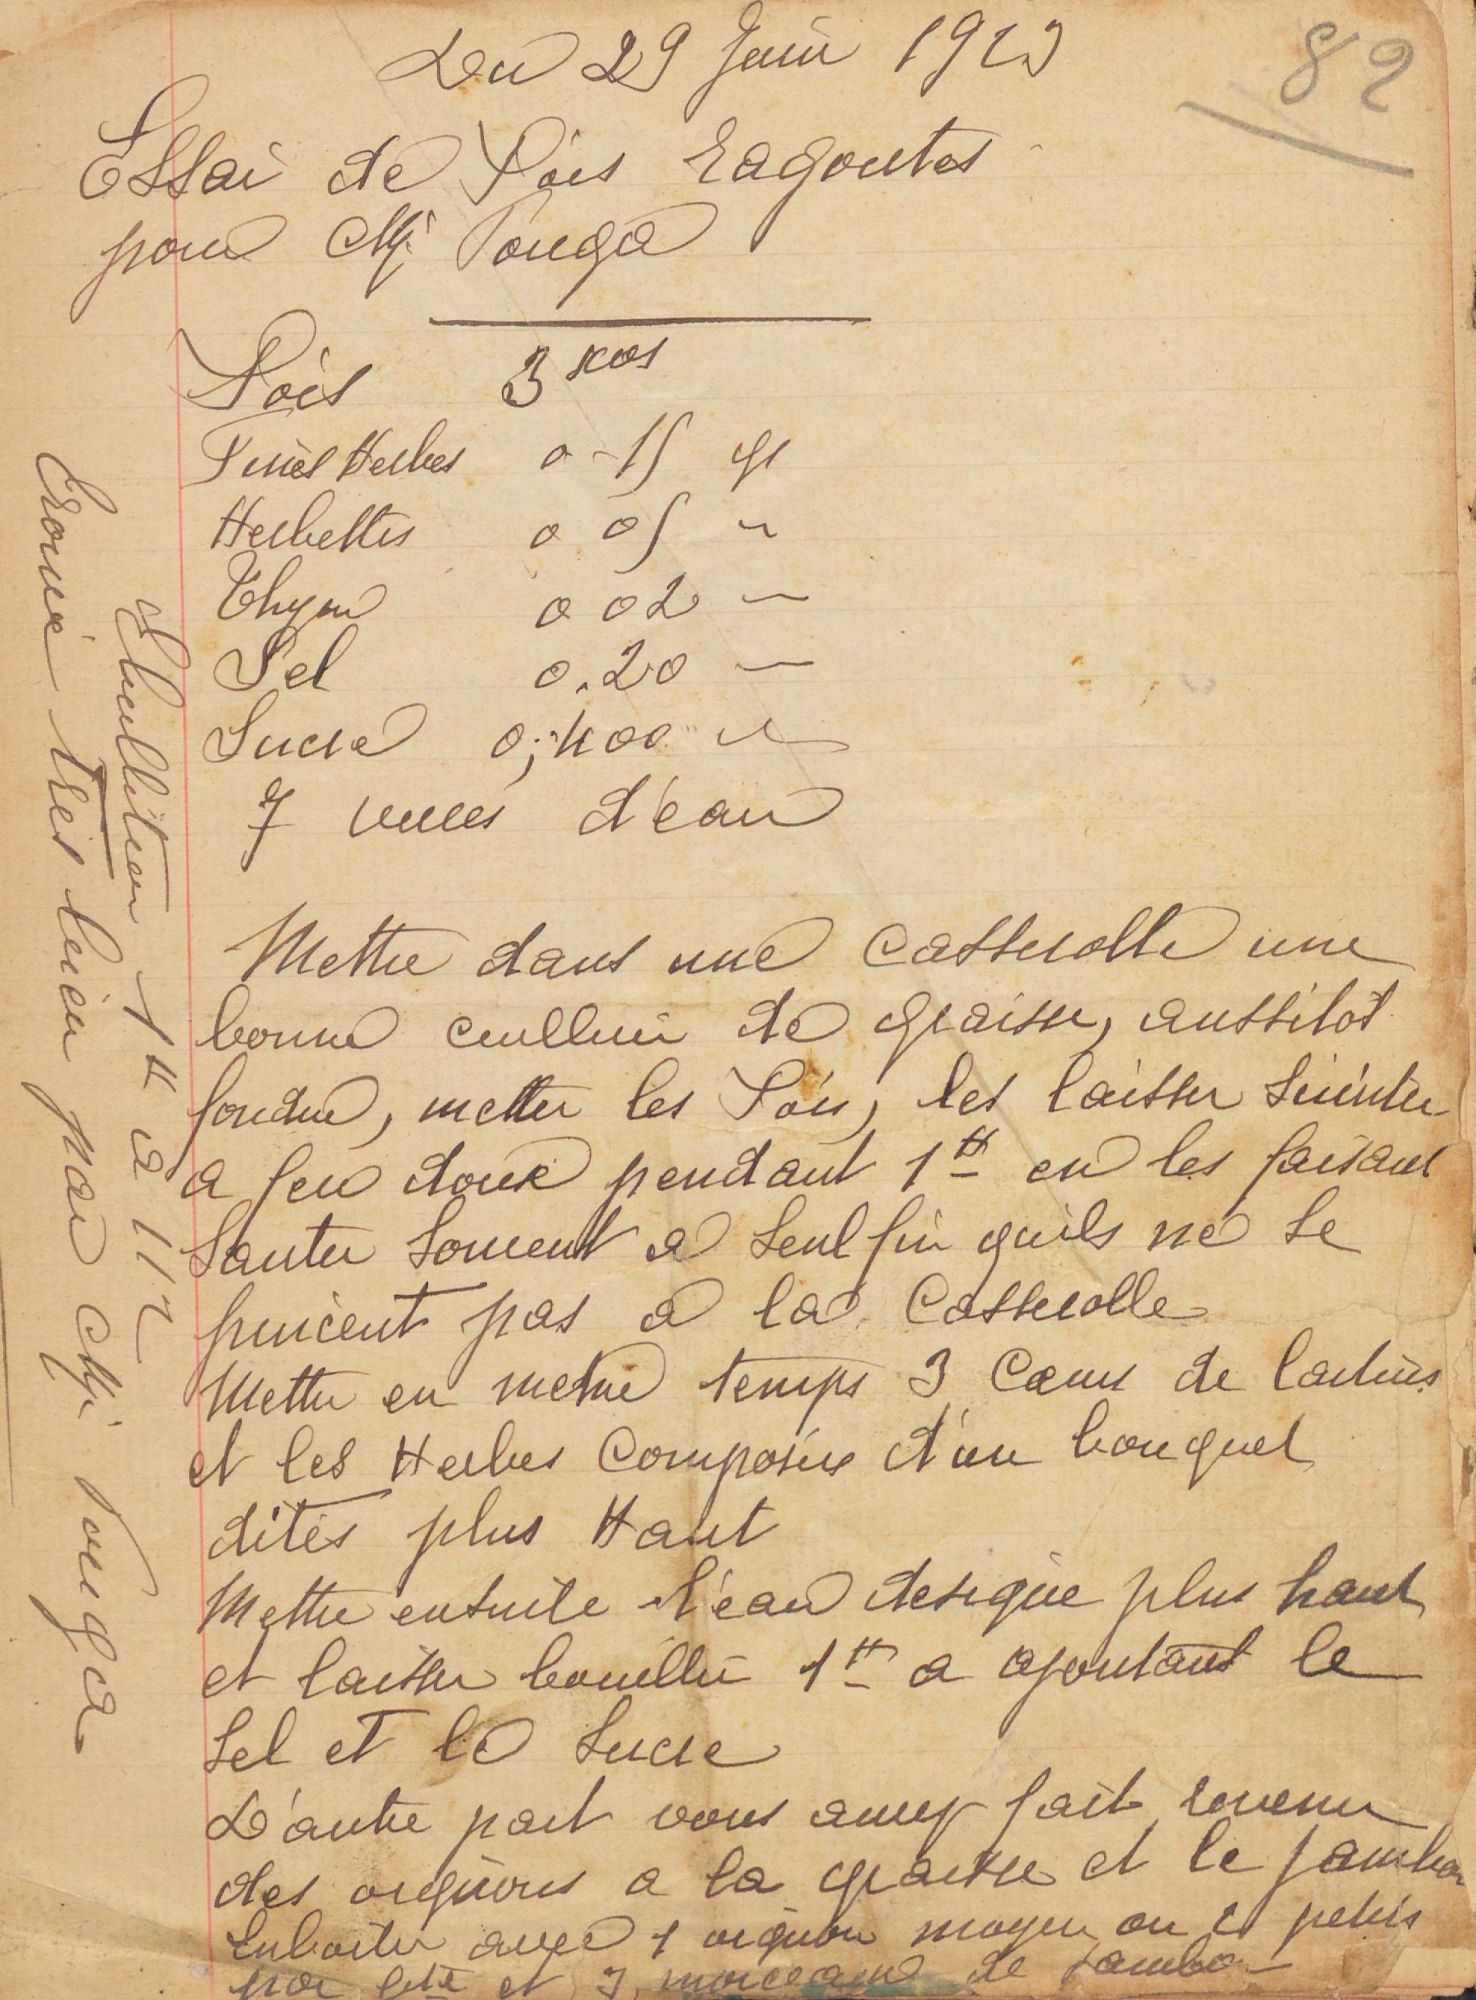 Du 29 Juin 1913
82
Essai de Pois ragoutes
pour Mr Pouga
Pois 3 kos
Fines Herbes 0-15 gr
Herbettes 0 05 "
Thym 0 02 "
Sel 0.20 "
Sucre 0,400 "
7 verres d'eau
Mettre dans une Casserolle une
bonne cuillere de graisse, aussitot
fondue, metter les Pois, les laisser suinter
a feu doux pendant 1H en les faisant
Sauter souvent a seul fin quils ne se
pincent pas a la Casserolle
Mettre en meme temps 3 Cœurs de laitues
et les Herbes Composées d'un bouquet
dites plus Haut
Mettre ensuite l'eau desigue plus haut
et laisser bouillir 1H a ajoutant le
Sel et le Sucre
D'autre part vous aurez fait revenir
des oignons a la graisse et le jambon
Enboiter avec 1 oignon moyen ou 2 petits
par bte et 3 morceaux de Jambon
Ebullition 1H a 112
trouvé très bien par Mr. Pouga